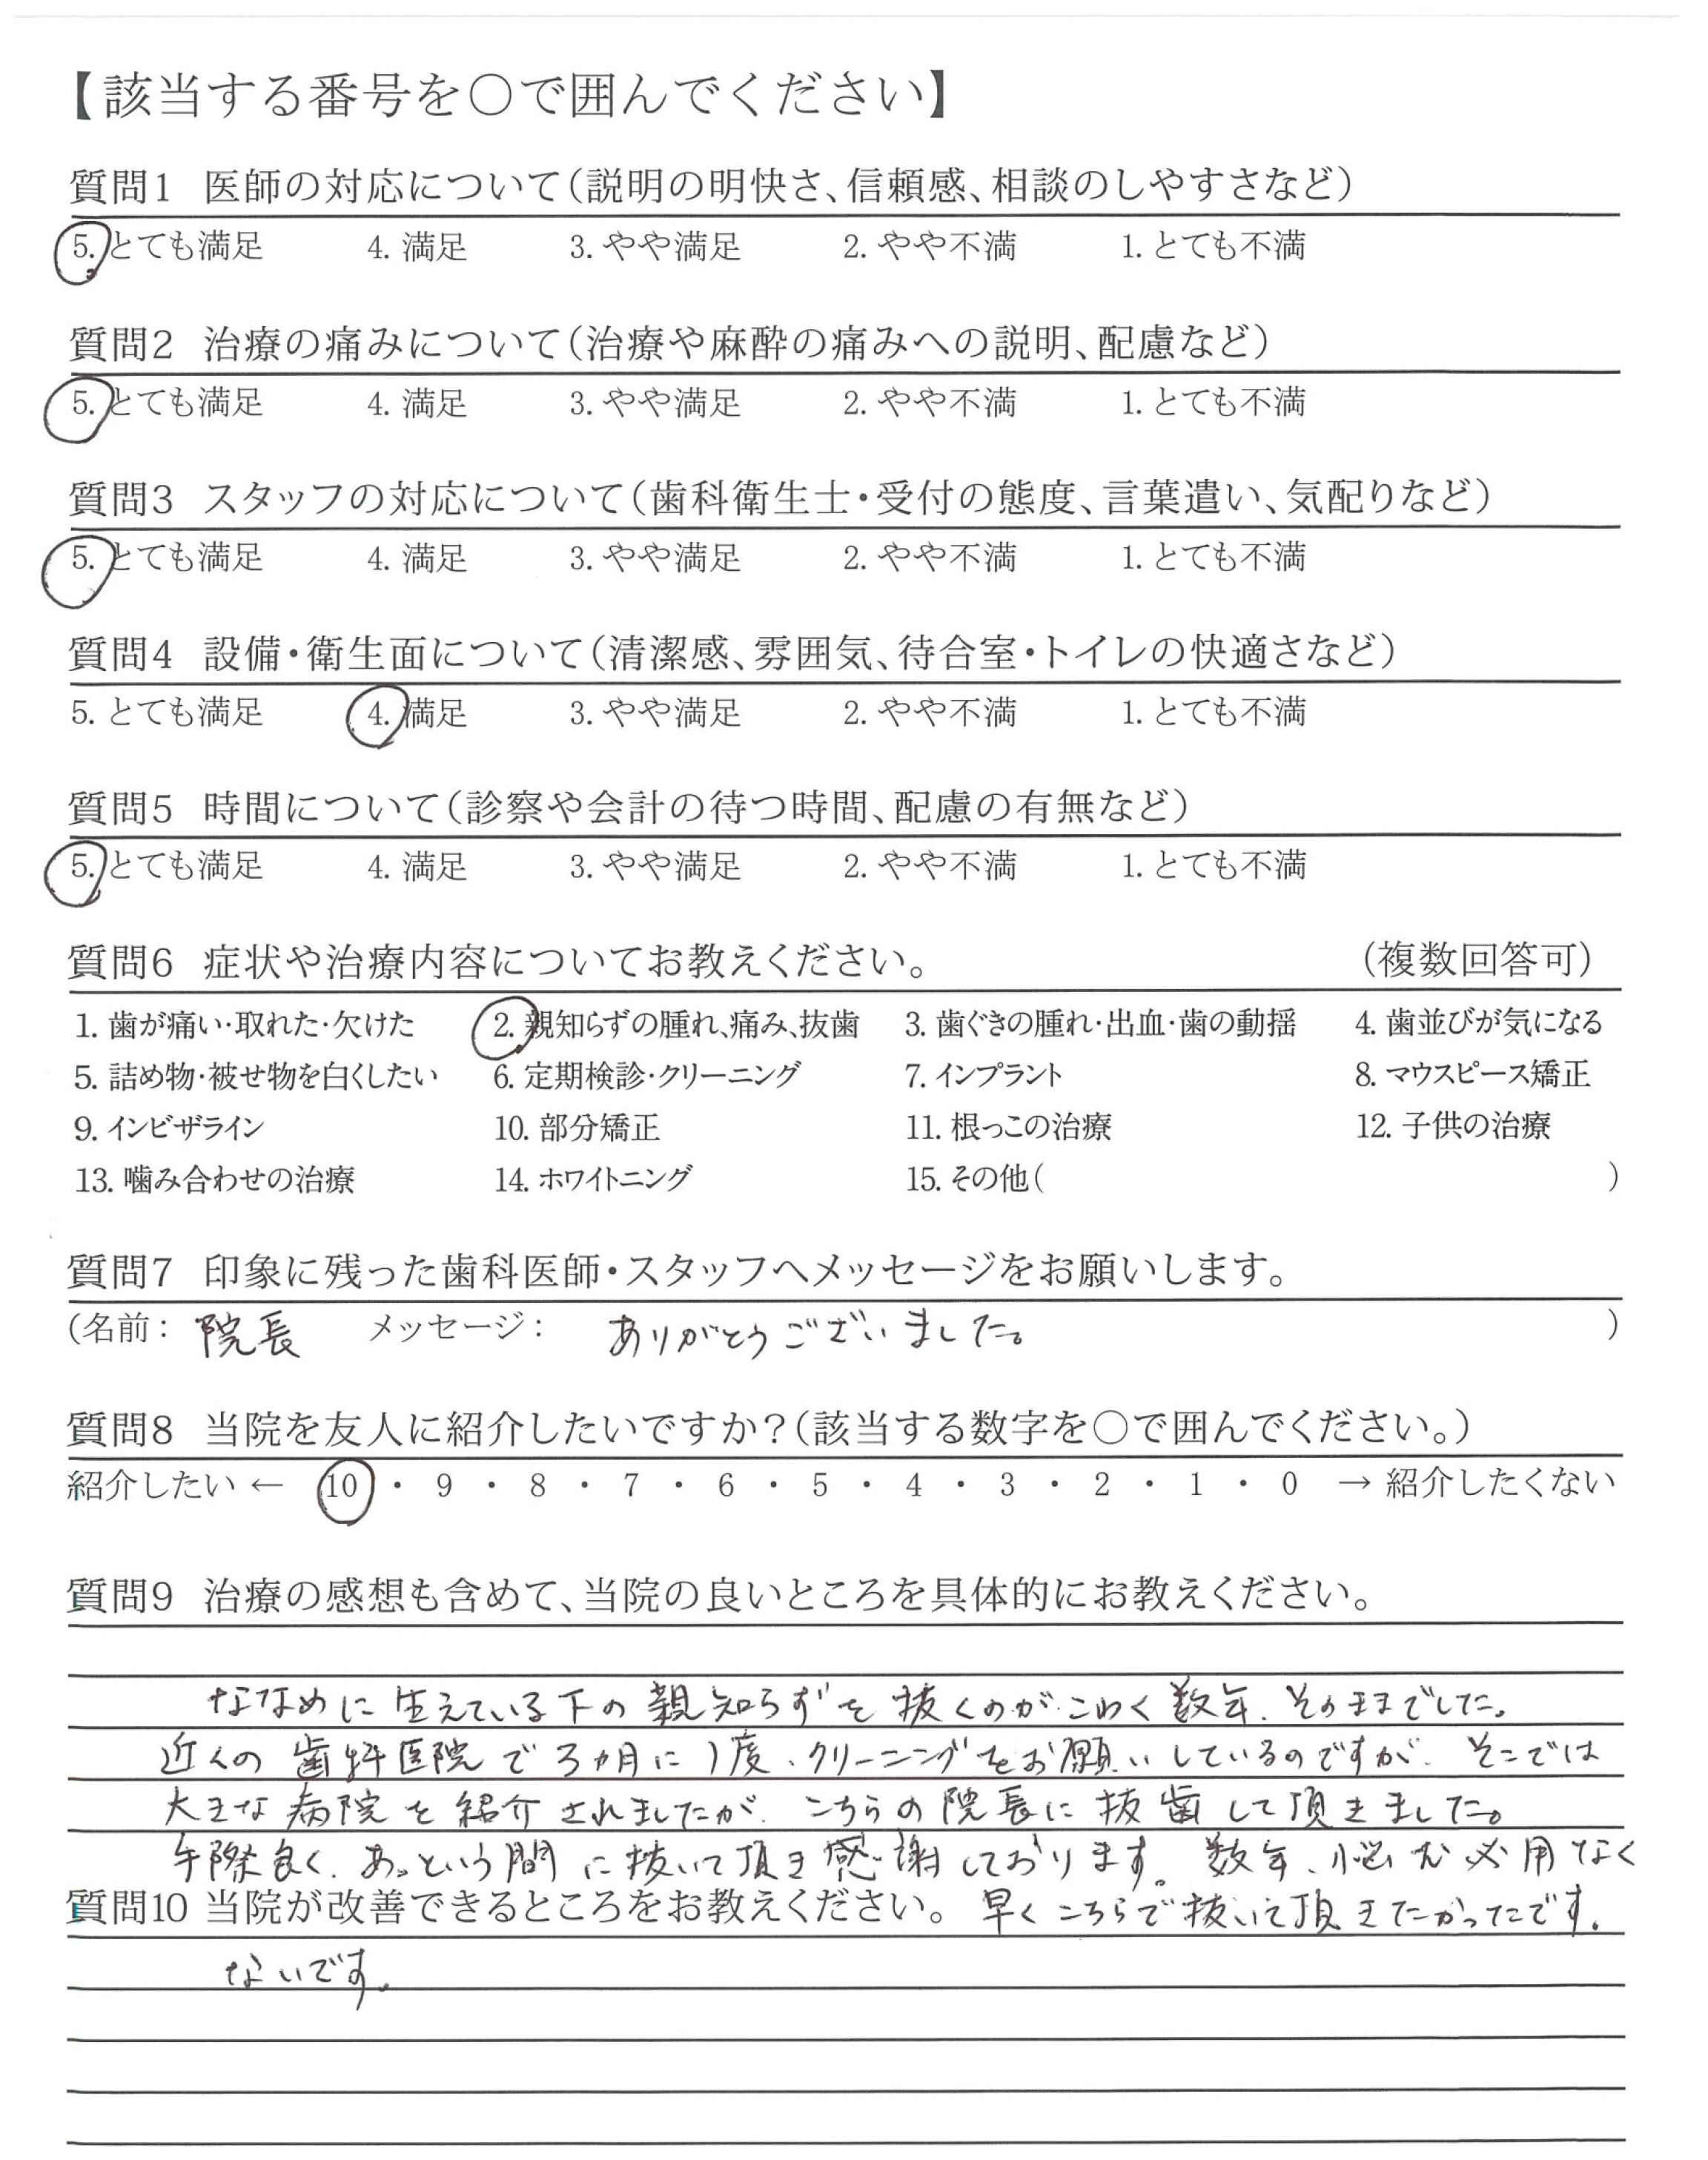 【該当する番号を○で囲んでください】
質問1 医師の対応について(説明の明快さ、信頼感、相談のしやすさなど)
5. とても満足 4. 満足 3. やや満足 2. やや不満 1. とても不満
質問2 治療の痛みについて(治療や麻酔の痛みへの説明、配慮など)
5. とても満足 4. 満足 3. やや満足 2. やや不満 1. とても不満
質問3 スタッフの対応について(歯科衛生士・受付の態度、言葉遣い、気配りなど)
5. とても満足 4. 満足 3. やや満足 2. やや不満 1. とても不満
質問4 設備・衛生面について(清潔感、雰囲気、待合室・トイレの快適さなど)
5. とても満足 4. 満足 3. やや満足 2. やや不満 1. とても不満
質問5 時間について(診察や会計の待つ時間、配慮の有無など)
5. とても満足 4. 満足 3. やや満足 2. やや不満 1. とても不満
質問6 症状や治療内容についてお教えください。 (複数回答可)
1. 歯が痛い・取れた・欠けた 2. 親知らずの腫れ、痛み、抜歯 3. 歯ぐきの腫れ・出血・歯の動揺 4. 歯並びが気になる
5. 詰め物・被せ物を白くしたい 6. 定期検診・クリーニング 7. インプラント 8. マウスピース矯正
9. インビザライン 10. 部分矯正 11. 根っこの治療 12. 子供の治療
13. 噛み合わせの治療 14. ホワイトニング 15. その他( )
質問7 印象に残った歯科医師・スタッフへメッセージをお願いします。
(名前: 院長 メッセージ: ありがとうございました。 )
質問8 当院を友人に紹介したいですか?(該当する数字を○で囲んでください。)
紹介したい ← 10 ・ 9 ・ 8 ・ 7 ・ 6 ・ 5 ・ 4 ・ 3 ・ 2 ・ 1 ・ 0 → 紹介したくない
質問9 治療の感想も含めて、当院の良いところを具体的にお教えください。
ななめに生えている下の親知らずを抜くのがこわく数年、そのままでした。
近くの歯科医院で3カ月に1度、クリーニングをお願いしているのですが、そこでは
大きな病院を紹介されましたが、こちらの院長に抜歯して頂きました。
手際良く、あっという間に抜いて頂き感謝しております。数年、悩む必用なく
質問10 当院が改善できるところをお教えください。 早くこちらで抜いて頂きたかったです。
ないです。